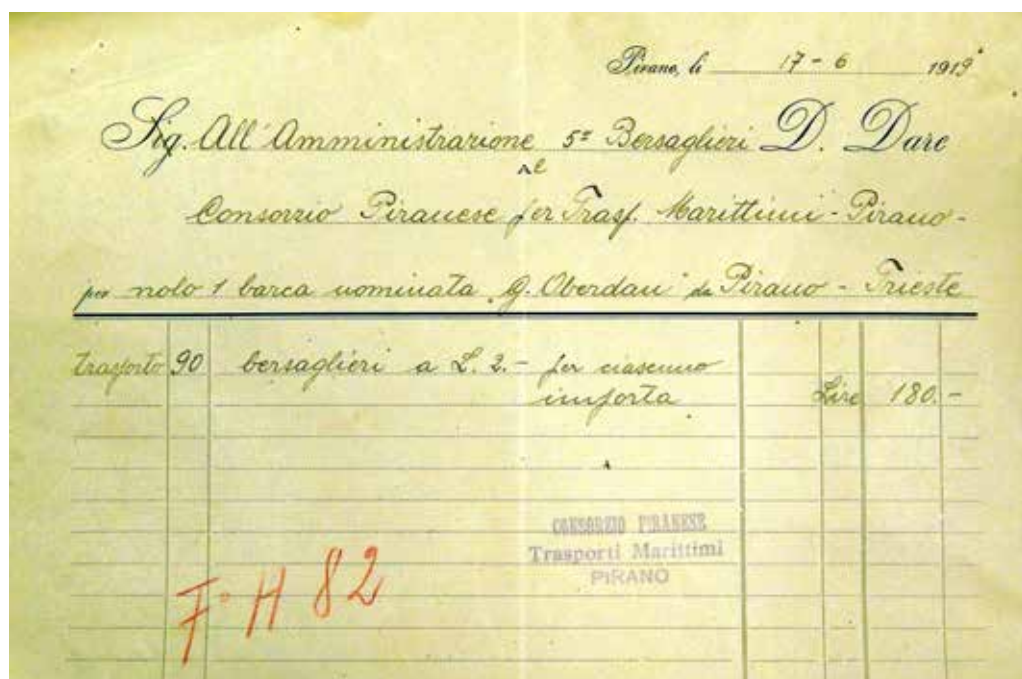 Pirano, li 17-6 1919
Sig. All' Amministrazione 5º Bersaglieri D. Dare
al
Consorzio Piranese per Trasp. Marittimi - Pirano -
per nolo 1 barca nominata „G. Oberdan" da Pirano - Trieste
trasporto 90 bersaglieri a L. 2.- per ciascuno
importa Lire 180.-
CONSORZIO PIRANESE
Trasporti Marittimi
PIRANO
Fº H 82